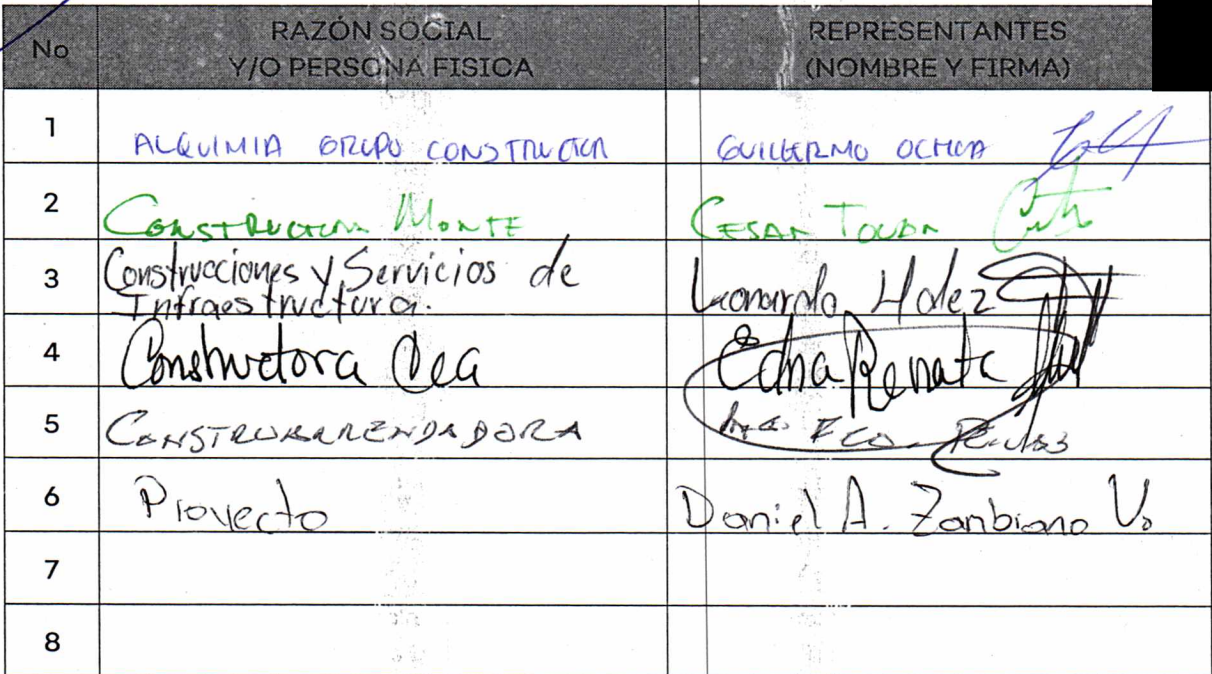 No
RAZÓN SOCIAL
Y/O PERSONA FISICA
REPRESENTANTES
(NOMBRE Y FIRMA)
1
ALQUIMIA GRUPO CONSTRUCTOR
GUILLERMO OCHOA
2
CONSTRUCTORA MONTE
CESAR
3
Construcciones y Servicios de
Infraestructura.
Leonardo
4
Constructora
Edna Renata
5
CONSTRUARRENDADORA
FCO.
6
Proyecto
Daniel A. Zambrano V.
7
8